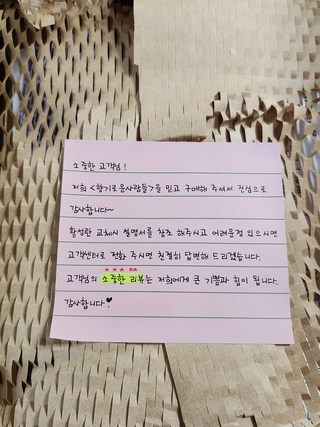 소중한 고객님!
저희 <향기로운사람들>을 믿고 구매해 주셔서 진심으로
감사합니다~
활성탄 교체시 설명서를 참조 해주시고 어려운점 있으시면
고객센터로 전화 주시면 친절히 답변해 드리겠습니다.
고객님의 소중한 리뷰는 저희에게 큰 기쁨과 힘이 됩니다.
감사합니다♥